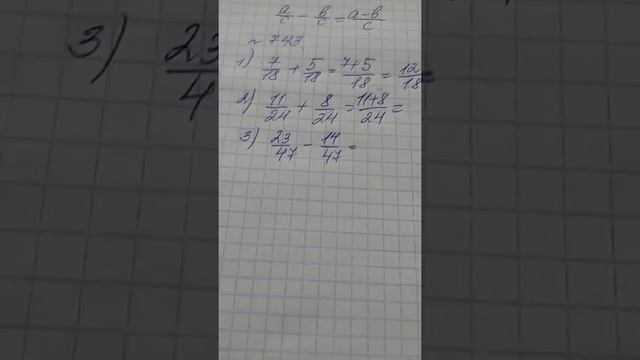 a/c - b/c = a-b/c
~ 743
1) 7/18 + 5/18 = 7+5/18 = 12/18 =
2) 11/24 + 8/24 = 11+8/24 =
3) 23/47 - 14/47 =